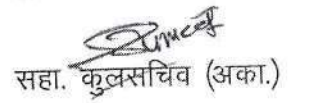 सहा. कुलसचिव (अका.)